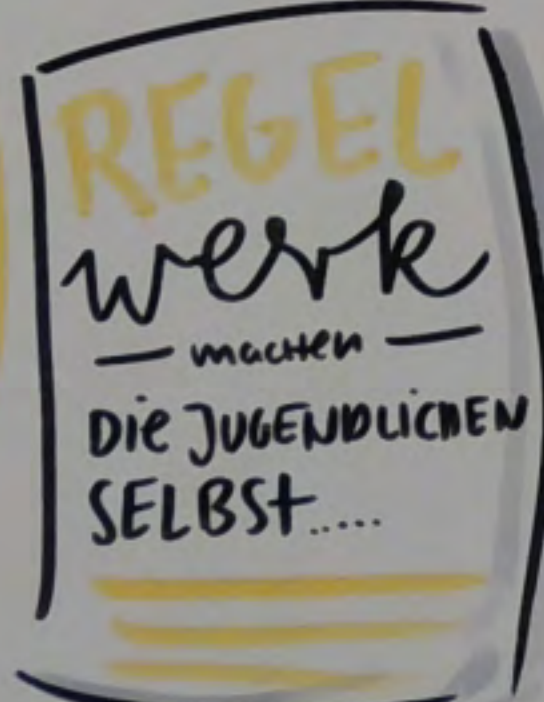 REGEL
werk
— machen —
Die JUGENDLICHEN
SELBST.....